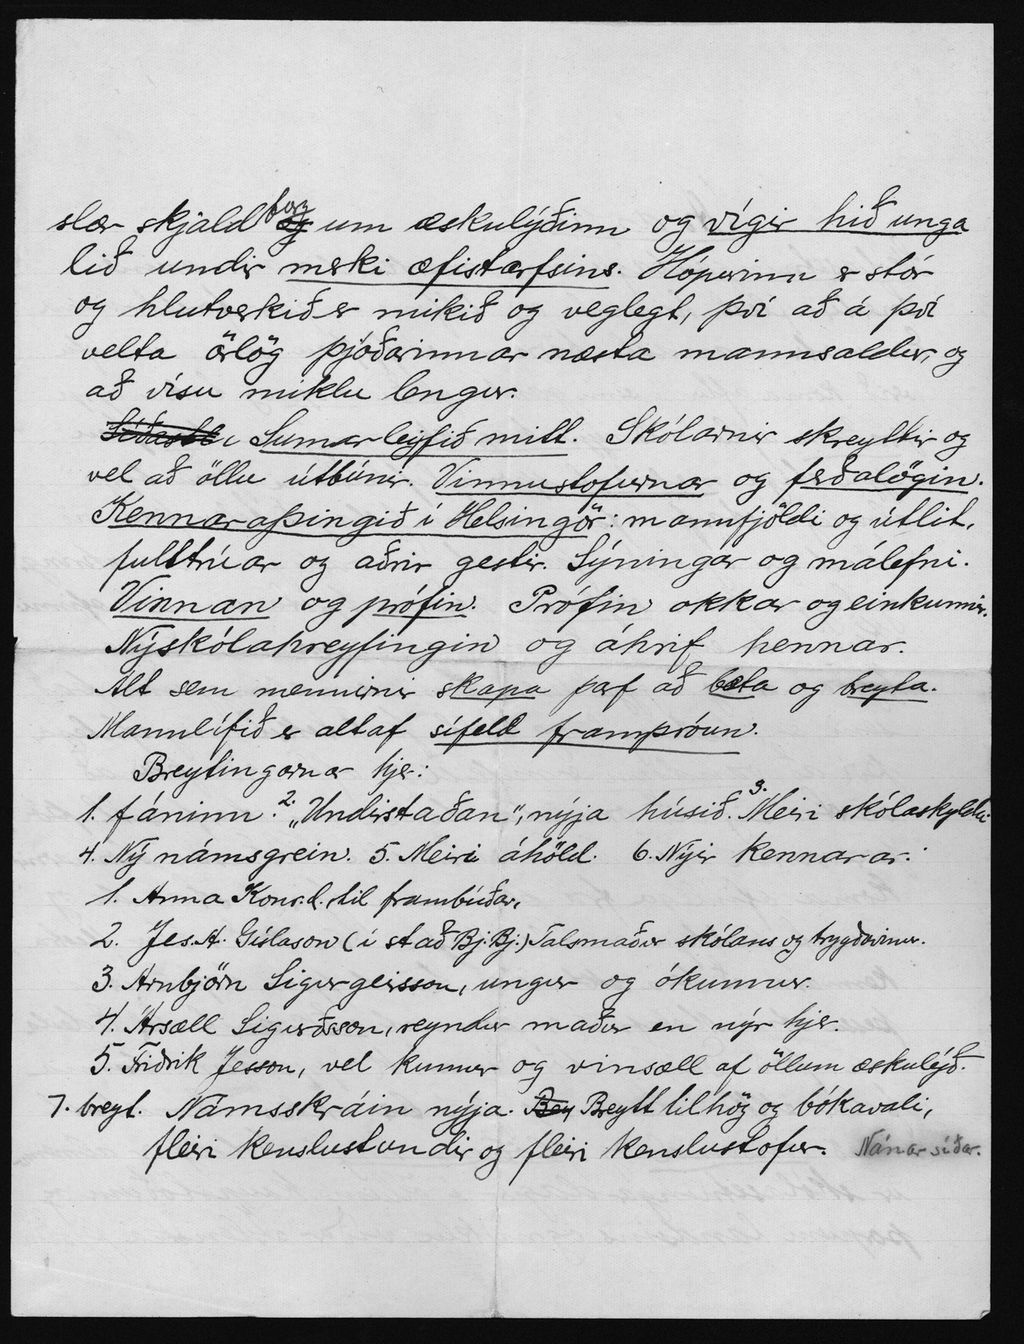 slær skjaldborg um æskulýðinn og vígir hið unga
lið undir merki æfistarfsins. Hópurinn er stór
og hlutverkið er mikið og veglegt, því að á því
velta örlög þjóðarinnar næsta mannsaldur, og
að vísu miklu lengur.
Síðastl. Sumarleyfið mitt. Skólarnir skreyttir og
vel að öllu útbúnir. Vinnustofurnar og ferðalögin.
Kennaraþingið í Helsingör: mannfjöldi og útlit,
fulltrúar og aðrir gestir. Sýningar og málefni.
Vinnan og prófin. Prófin okkar og einkunnir.
Nýskólahreyfingin og áhrif hennar.
Alt sem mennirnir skapa þarf að bæta og breyta.
Mannlífið er altaf sífeld framþróun.
Breytingarnar hjer:
1. fáninn. 2. „Undirstaðan“, nýja húsið. 3. Meiri skólaskylda.
4. Ný námsgrein. 5. Meiri áhöld. 6. Nýir kennarar:
1. Anna Konr.d. til frambúðar,
2. Jes. A. Gíslason (í stað Bj. Bj.) Talsmaður skólans og trygðavinur.
3. Arnbjörn Sigurgeirsson, ungur og ókunnur.
4. Ársæll Sigurðsson, reyndur maður en nýr hjer.
5. Friðrik Jesson, vel kunnur og vinsæll af öllum æskulýð.
7. breyt. Námsskráin nýja. Bey Breytt tilhög og bókavali,
fleiri kenslustundir og fleiri kenslustofur. Nánar síðar.